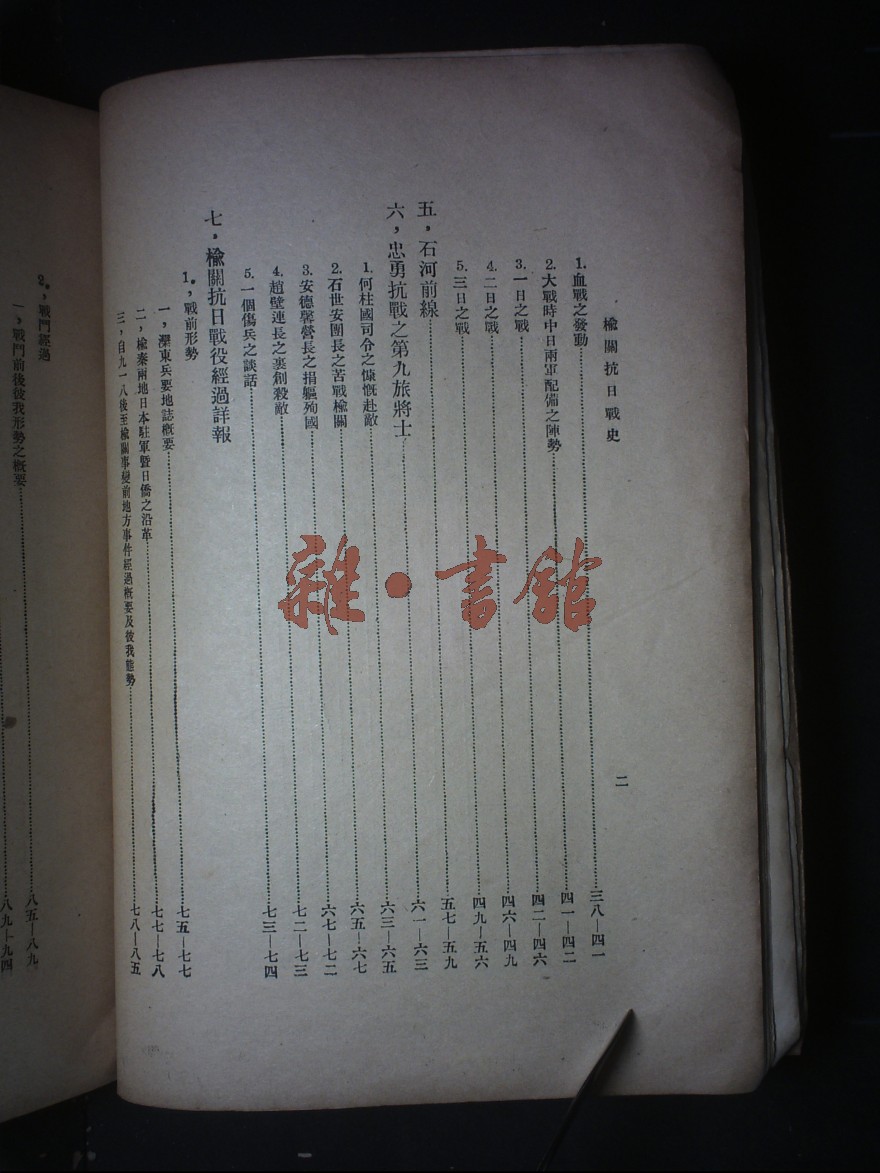 榆關抗日戰史
二
1.血戰之發動……三八—四一
2.大戰時中日兩軍配備之陣勢……四一—四二
3.一日之戰……四二—四六
4.二日之戰……四六—四九
5.三日之戰……四九—五六
五，石河前線……五七—五九
六，忠勇抗戰之第九旅將士……六一—六三
1.何柱國司令之慷慨赴敵……六三—六五
2.石世安團長之苦戰榆關……六五—六七
3.安德馨營長之捐軀殉國……六七—七二
4.趙壁連長之裹創殺敵……七二—七三
5.一個傷兵之談話……七三—七四
七，榆關抗日戰役經過詳報
1，戰前形勢
一，灤東兵要地誌概要……七五—七七
二，榆秦兩地日本駐軍暨日僑之沿革……七七—七八
三，自九一八後至榆關事變前地方事件經過概要及彼我態勢……七八—八五
2，戰鬥經過
一，戰鬥前後彼我形勢之概要……八五—八九
八九—九四
雜·書館